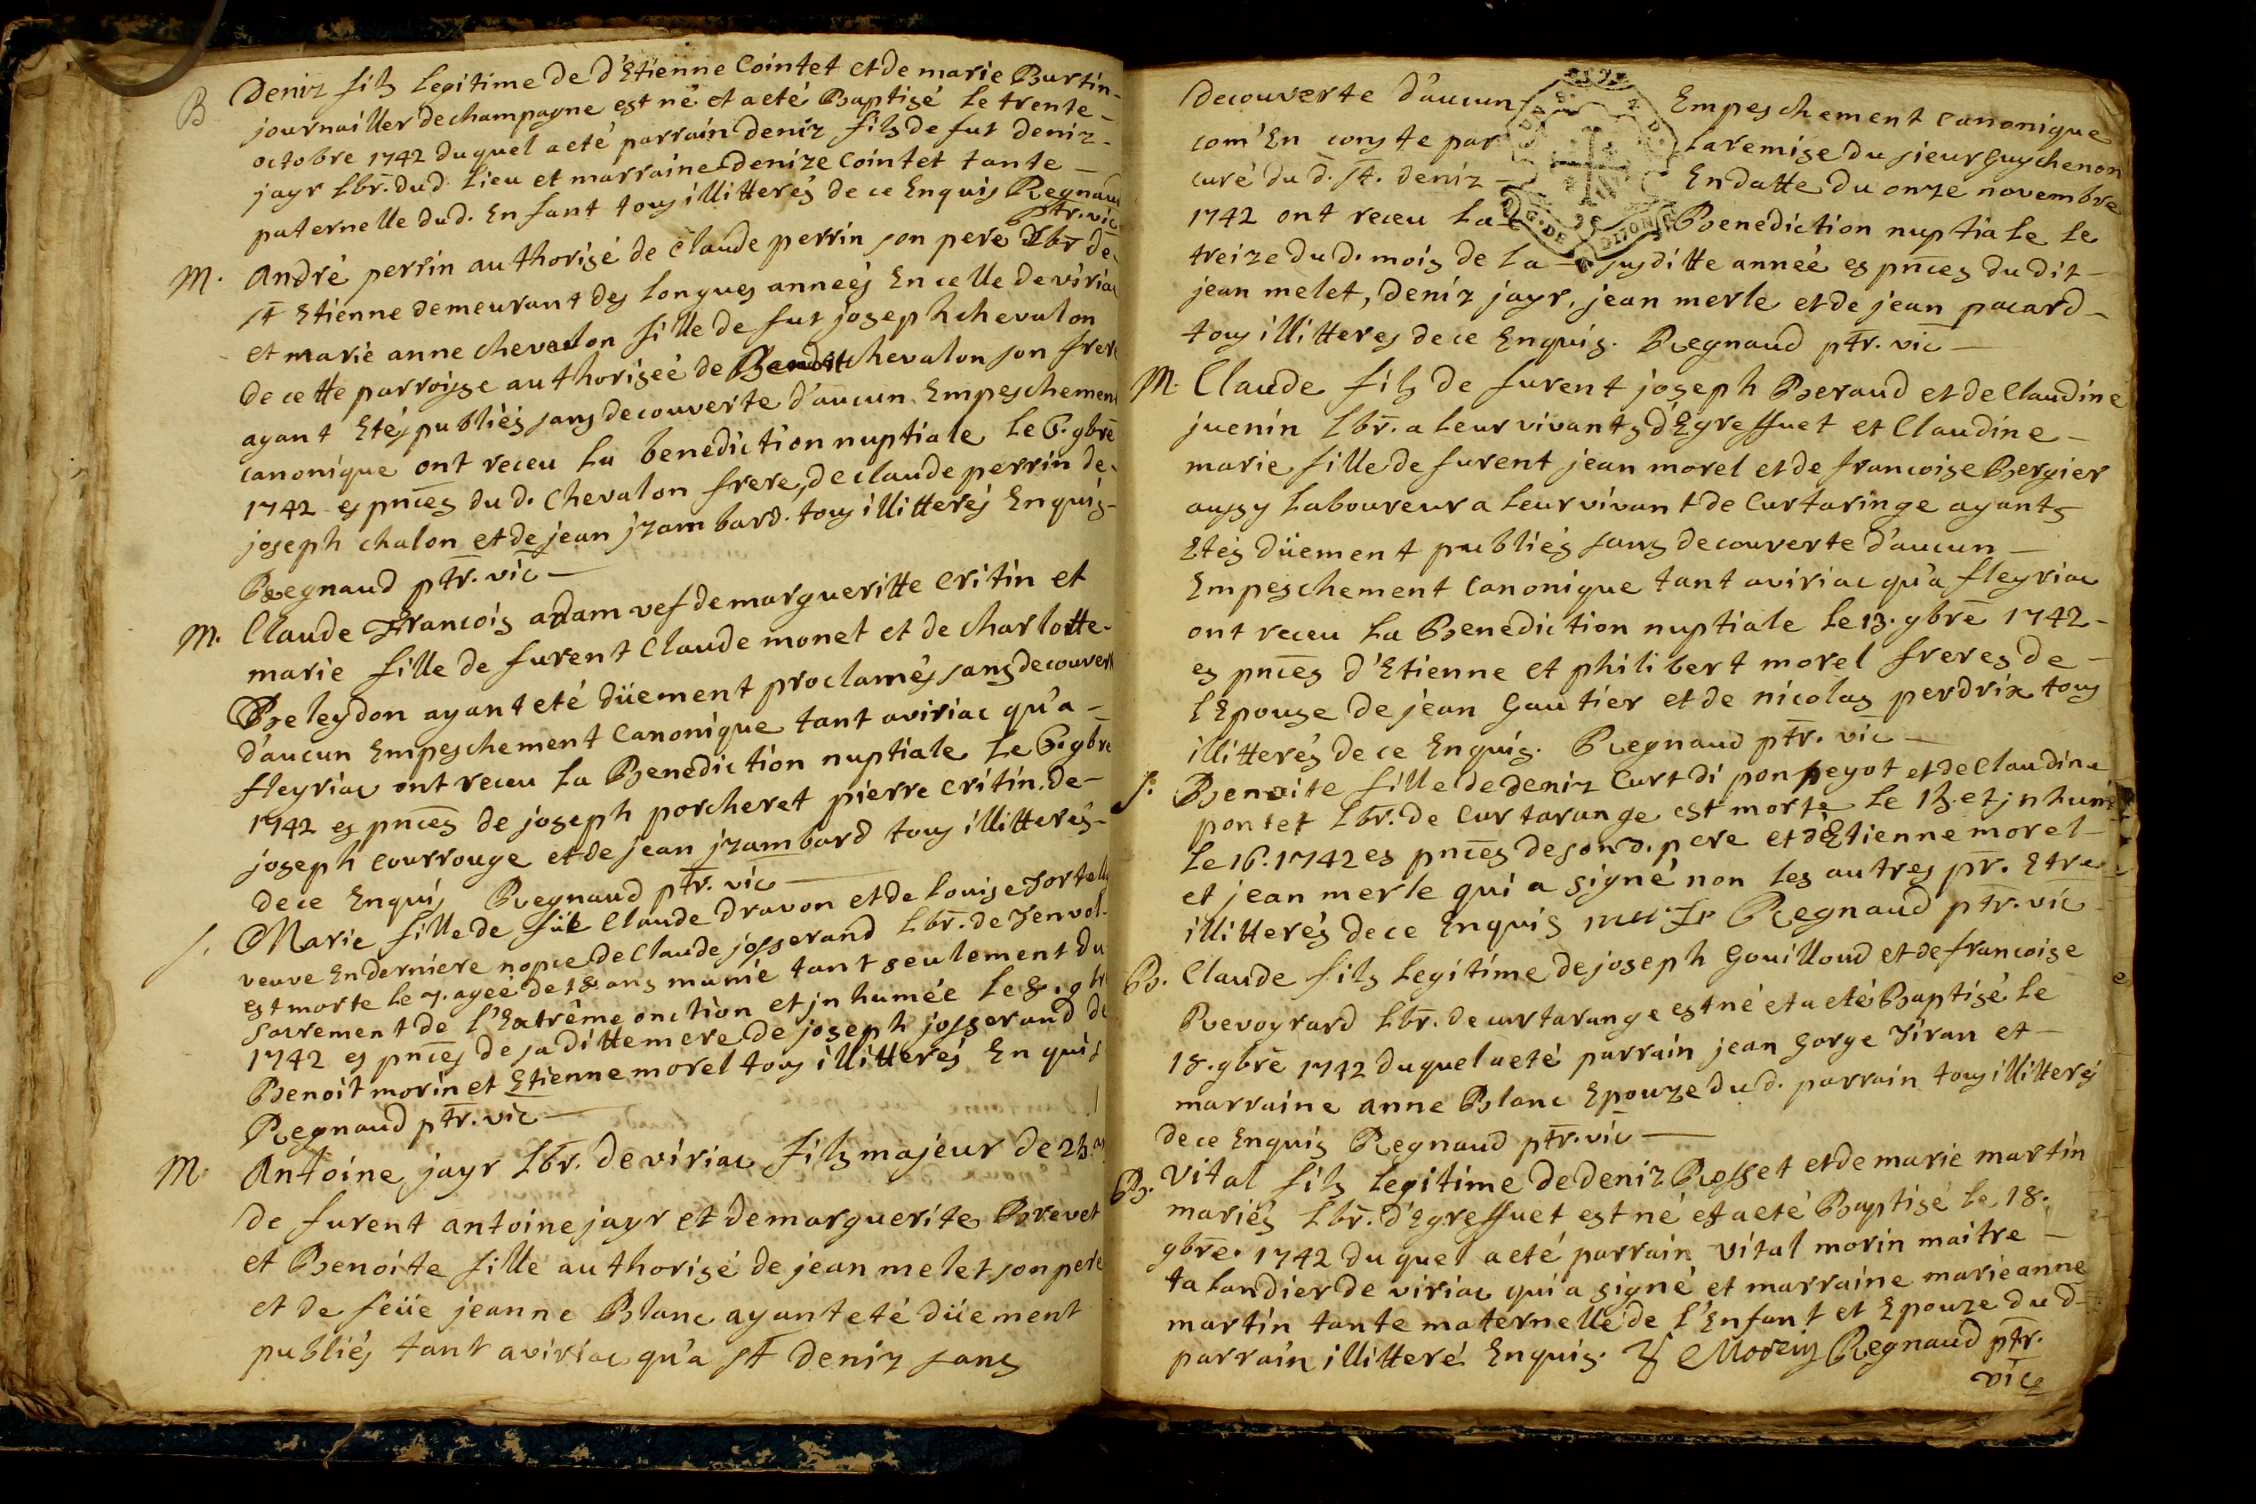 B Deniz filz legitime de d'Etienne Cointet et de marie Burtin
journailler de champagne est né et a eté Baptisé le trente
octobre 1742 duquel a eté parrain deniz filz de fut deniz
jayr lbr. dud. lieu et marraine denize Cointet tante
paternelle dud. Enfant tous illitterés de ce Enquis Regnaud
ptr. vic
M. André perrin authorisé de Claude perrin son pere lbr de
st Etienne demeurant des longues années En celle de viriac
et marie anne chevalon fille de fut joseph chevalon
de cette parroisse authorisée de Benoit chevalon son frere
ayant Etés publiés sans decouverte d'aucun Empeschement
canonique ont receu la benediction nuptiale le 6. gbre
1742 es pnces du d. Chevalon frere, de claude perrin de
joseph chalon et de jean jzambard. tous illitterés Enquis
Regnaud ptr. vic
M. Claude Francois adam vef de margueritte Critin et
marie fille de furent Claude monet et de charlotte
Beleydon ayant eté düement proclamés sans decouverte
d'aucun Empeschement Canonique tant a viriac qu'a
fleyriac ont receu la Benediction nuptiale le 6. gbre
1742 es pnces de joseph porcheret pierre Critin. de
joseph Courrouge et de jean jzambard tous illitterés
de ce Enquis Regnaud ptr. vic
s. Marie fille de fut Claude dravon et de Louise
veuve En derniere nopce de Claude josserand lbr. de
est morte le 7. agée de 78 ans munie tant seulement du
sacrement de l'Extrême onction et jnhumée le 8. gbre
1742 es pnces de sa ditte mere de joseph josserand de
Benoit morin et Etienne morel tous illitterés Enquis
Regnaud ptr. vic
M. Antoine jayr lbr. de viriac filz majeur de 23. ans
de furent antoine jayr et de marguerite Brevet
et Benoite fille authorisé de jean melet son pere
et de feüe jeanne Blanc ayant eté düement
publiés tant a viriac qu'a st deniz sans
decouverte d'aucun Empeschement Canonique
com'En conste par la remise du sieur Guychenon
curé du d. st. deniz En datte du onze novembre
1742 ont receu la Benediction nuptiale le
treize du d. mois de la susditte année es pnces du dit
jean melet, deniz jayr, jean merle et de jean pacard
tous illitteres de ce Enquis. Regnaud ptr. vic
M. Claude filz de furent joseph Beraud et de Claudine
juenin lbr. a leur vivants d'Egreffuet et Claudine
marie fille de furent jean morel et de francoise Bergier
aussy laboureur a leur vivant de Curtaringe ayants
Etés düement publiés sans decouverte d'aucun
Empeschement Canonique tant a viriac qu'a fleyriac
ont receu la Benediction nuptiale le 13. gbre 1742
es pnces d'Etienne et philibert morel freres de
l'Epouse de jean Gautier et de nicolas perdrix tous
illitterés de ce Enquis. Regnaud ptr. vic
s. Benoite fille de deniz Curt di pompeyot et de Claudine
pontet lbr. de Curtarange est morte le 15. et jnhumé
le 16. 1742 es pnces de son d. pere et d'Etienne morel
et jean merle qui a signé non les autres pr. Etre
illitterés de ce Enquis Regnaud ptr. vic
B. Claude filz legitime de joseph Gouilloud et de francoise
Revoyrard lbr. de curtarange est né et a eté Baptisé le
18. gbre 1742 duquel a eté parrain jean Gorge Tiran et
marraine anne Blanc Epouze du d. parrain tous illitterés
de ce Enquis Regnaud ptr. vic
B. Vital filz legitime de deniz Rosset et de marie martin
mariés lbr. d'Egreffuet est né et a eté Baptisé le 18.
gbre. 1742 du quel a eté parrain vital morin maitre
talandier de viriac qui a signé et marraine marie anne
martin tante maternelle de l'Enfant et Epouze du d
parrain illitteré Enquis. Morein Regnaud ptr.
vic